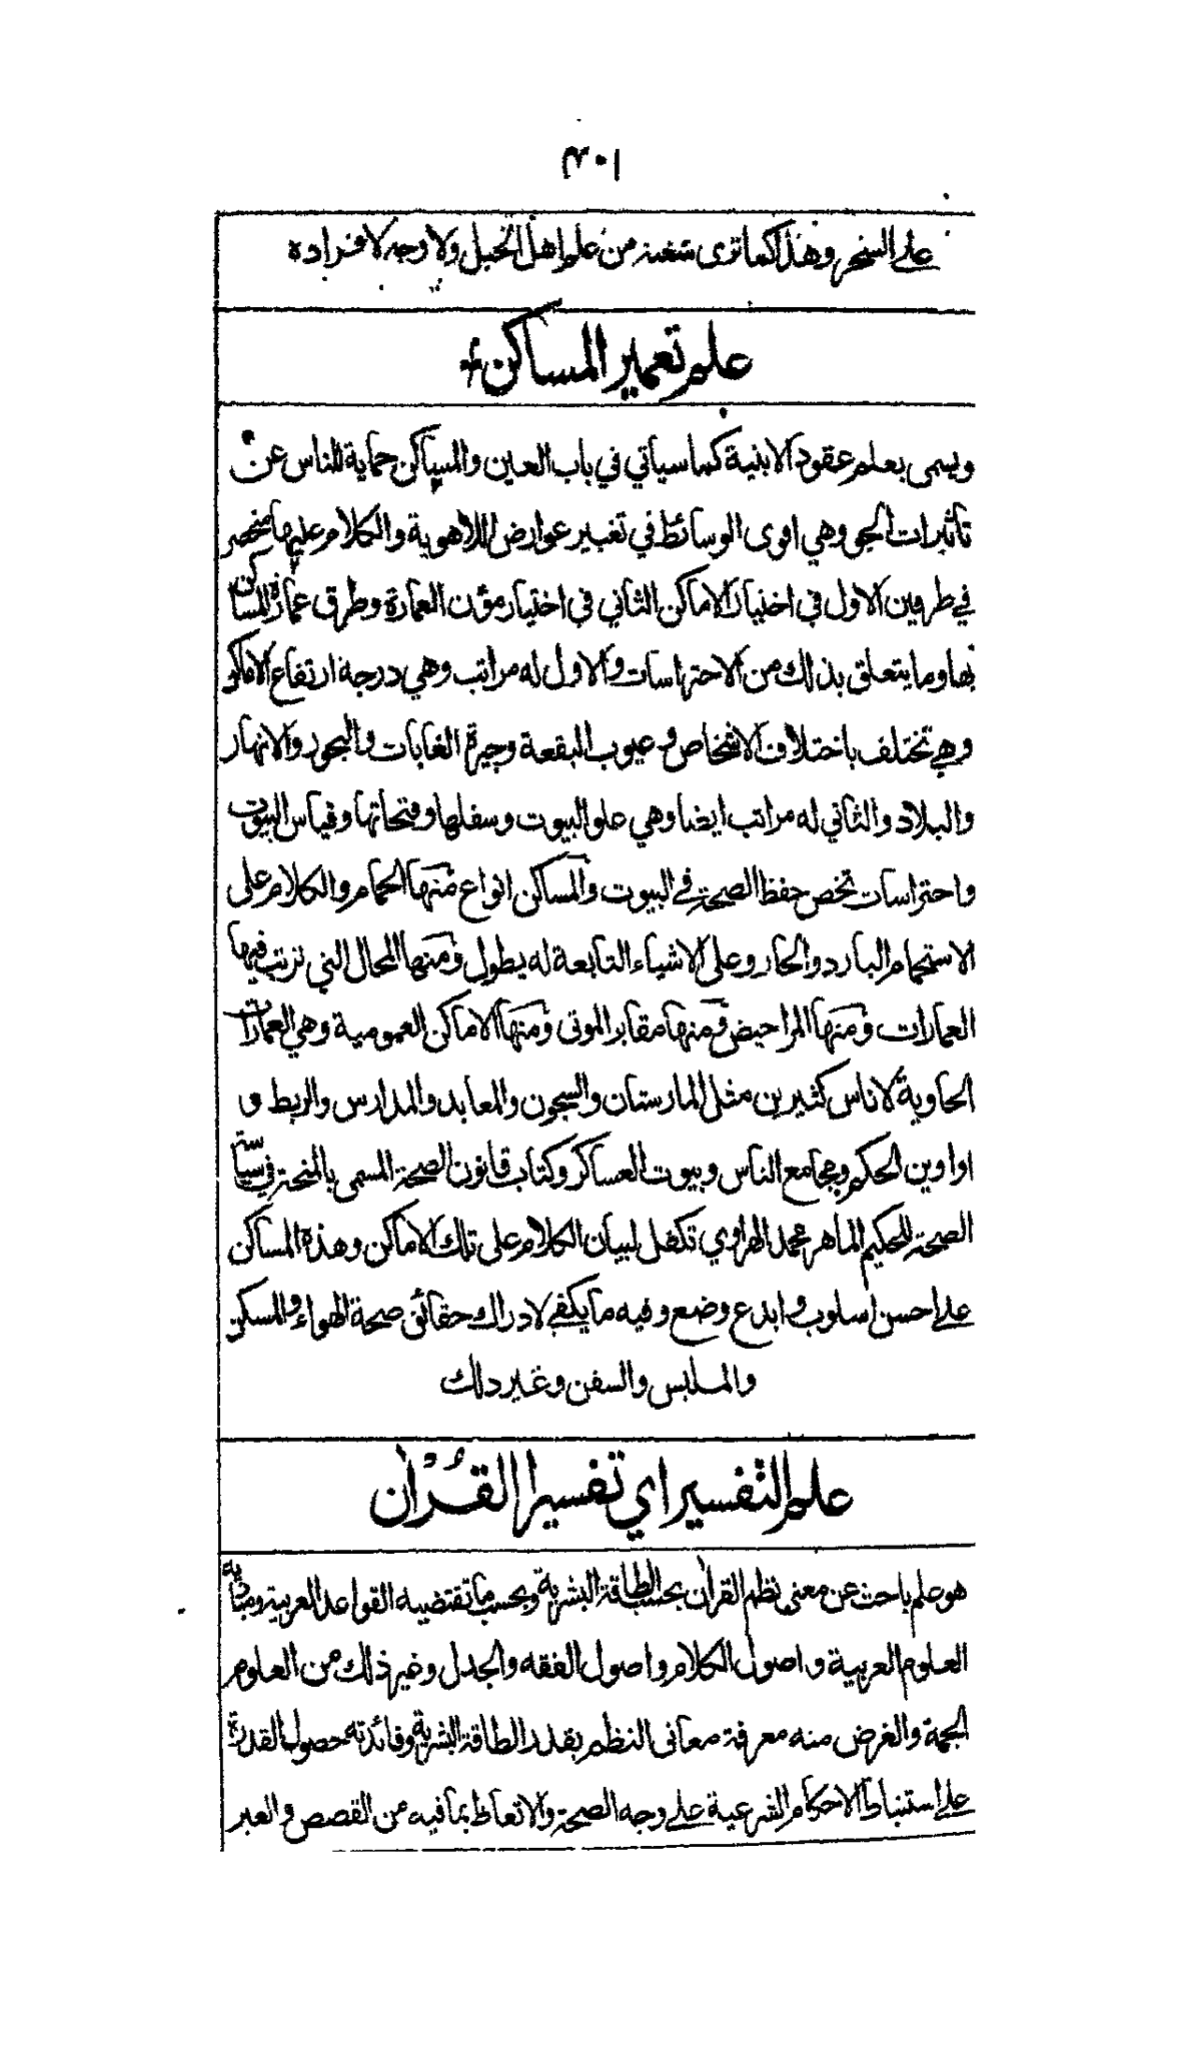 ٣٠١
على السحر وهذا كما ترى شعبة من علم اهل الحيل ولا وجه لافراده
علم تعمير المساكن
ويسمى بعلم عقود الابنية كما سياتي في باب العين والمساكن حماية للناس عن
تأثيرات الجو وهي اقوى الوسائط في تغيير عوارض الاهوية والكلام عليها منحصر
في طرفين الاول في اختيار الاماكن الثاني في اختيار مؤن العمارة وطرق عمارة المساكن
بها وما يتعلق بذلك من الاحتراسات والاول له مراتب وهي درجة ارتفاع الاماكن
وهي تختلف باختلاف الاشخاص وعيوب البقعة وجيرة الغابات والبحور والانهار
والبلاد والثاني له مراتب ايضا وهي علو البيوت وسفلها وفتحاتها وقياس البيوت
واحتراسات تخص حفظ الصحة في البيوت والمساكن انواع منها الحمام والكلام على
الاستحمام البارد والحار وعلى الاشياء التابعة له يطول ومنها المحال التي ترتب فيها
العمارات ومنها المراحيض ومنها مقابر الموتى ومنها الاماكن العمومية وهي العمارات
الحاوية لاناس كثيرين مثل المارستان والسجون والمعابد والمدارس والربط و
اواوين الحكم ومجامع الناس وبيوت العساكر وكتاب قانون الصحة المسمى بالمنحة في سياسة
الصحة للحكيم الماهر محمد الهراوي تكفل لبيان الكلام على تلك الاماكن وهذه المساكن
على احسن اسلوب وابدع وضع وفيه ما يكفي لادراك حقائق صحة الهواء والمسكن
والملبس والسفن وغير ذلك
علم التفسير اي تفسير القرآن
هو علم باحث عن معنى نظم القرآن بحسب الطاقة البشرية وبحسب ما تقتضيه القواعد العربية ومباديه
العلوم العربية واصول الكلام واصول الفقه والجدل وغير ذلك من العلوم
الجمة والغرض منه معرفة معانى النظم بقدر الطاقة البشرية وفائدته حصول القدرة
على استنباط الاحكام الشرعية على وجه الصحة والاتعاظ بما فيه من القصص والعبر